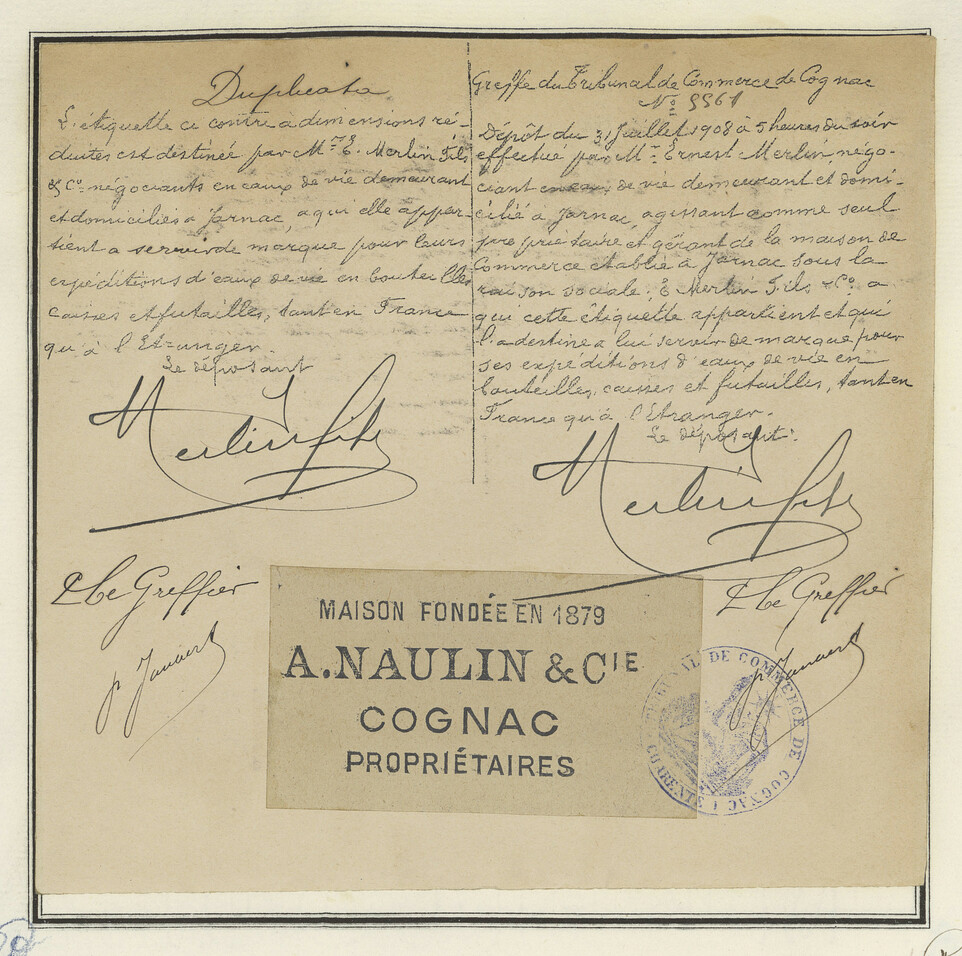 Duplicata
L'étiquette ci contre a dimensions ré-
duites est destinée par Mr E. Merlin Fils
& Co négociants en eaux de vie demeurant
et domiciliés à Jarnac, a qui elle appar-
tient a servir de marque pour leurs
expéditions d'eaux de vie en bouteilles
caisses et futailles, tant en France
qu'à l'Etranger.
Le déposant
Merlin fils
Le Greffier
Greffe du Tribunal de Commerce de Cognac
No 5561
Dépôt du 31 Juillet 1908 à 5 heures du soir
effectué par Mr Ernest Merlin, négo-
ciant en eau de vie demeurant et domi-
cilié à Jarnac, agissant comme seul
propriétaire et gérant de la maison de
Commerce etablie à Jarnac sous la
raison sociale: E Merlin Fils & Co. a
qui cette étiquette appartient et qui
l'a destine a lui servir de marque pour
ses expéditions d'eaux de vie en
bouteilles, caisses et futailles, tant en
France qu'à l'Etranger.
Le déposant:
Merlin fils
Le Greffier
MAISON FONDÉE EN 1879
A. NAULIN & CIE
COGNAC
PROPRIÉTAIRES
TRIBUNAL DE COMMERCE DE COGNAC (CHARENTE)